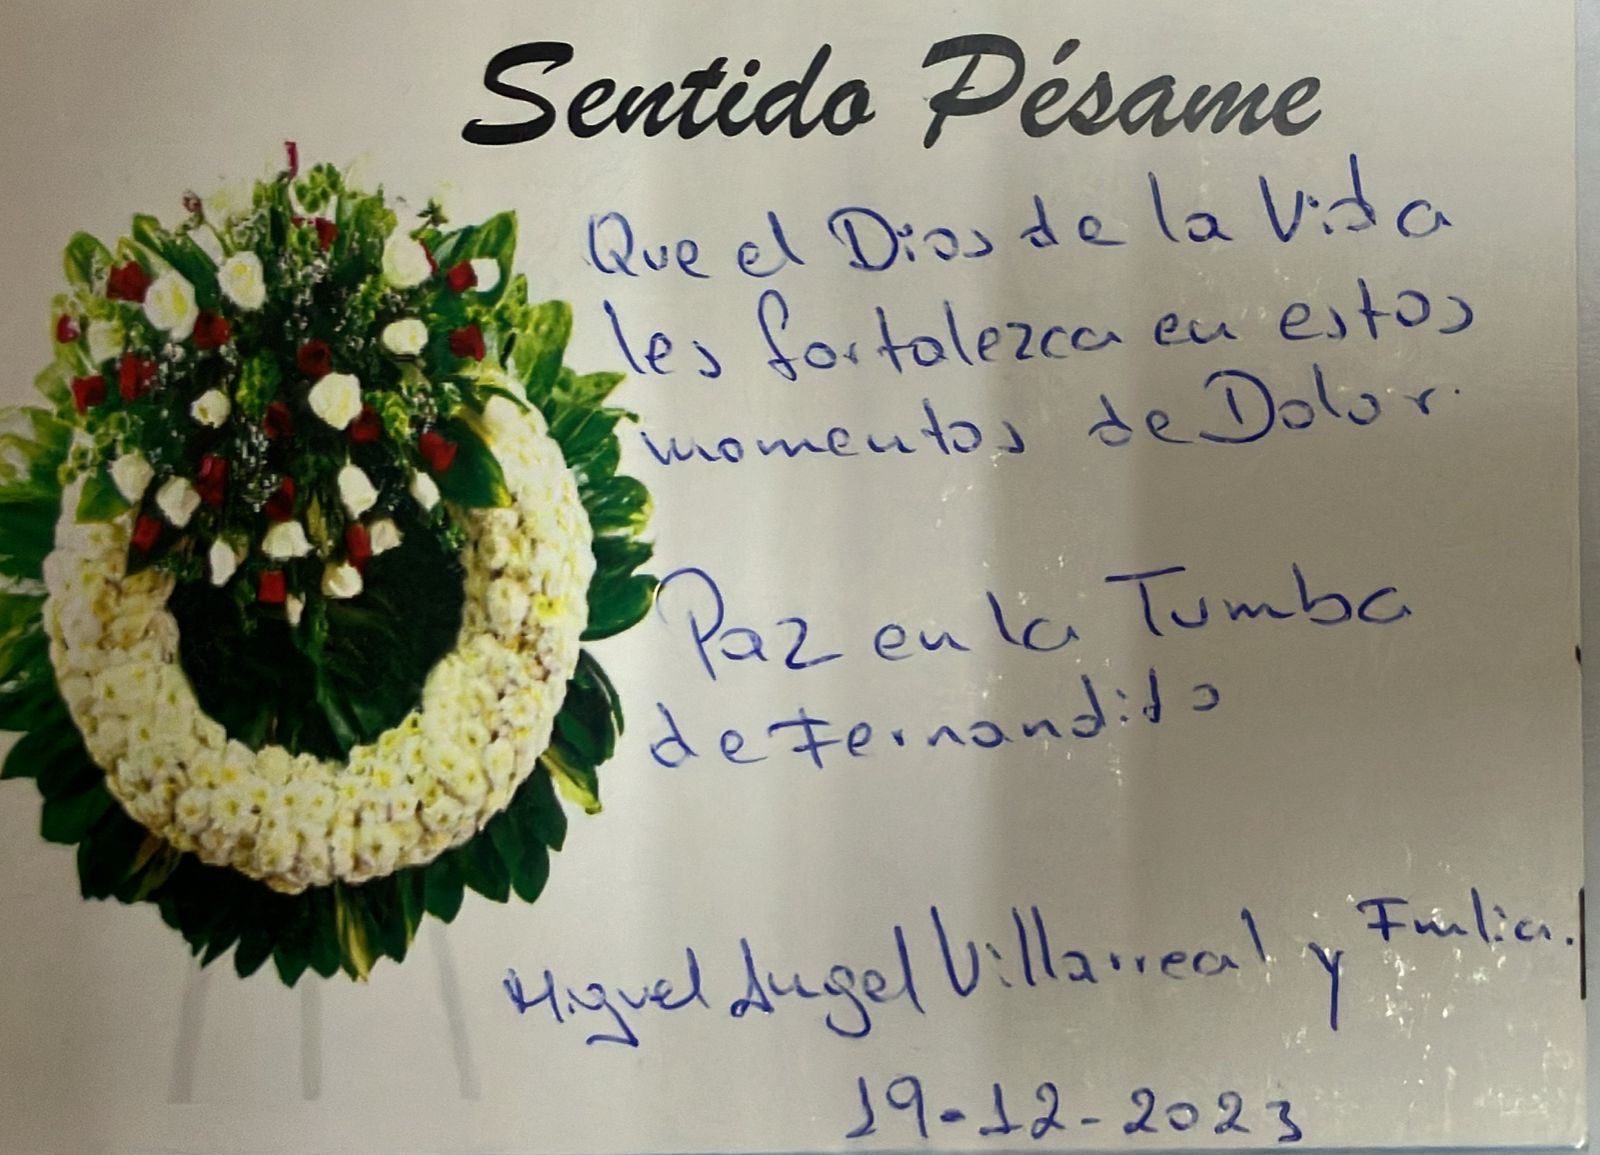 Sentido Pésame
Que el Dios de la Vida
les fortalezca en estos
momentos de Dolor.
Paz en la Tumba
de Fernandito
Miguel Angel Villarreal y
19-12-2023